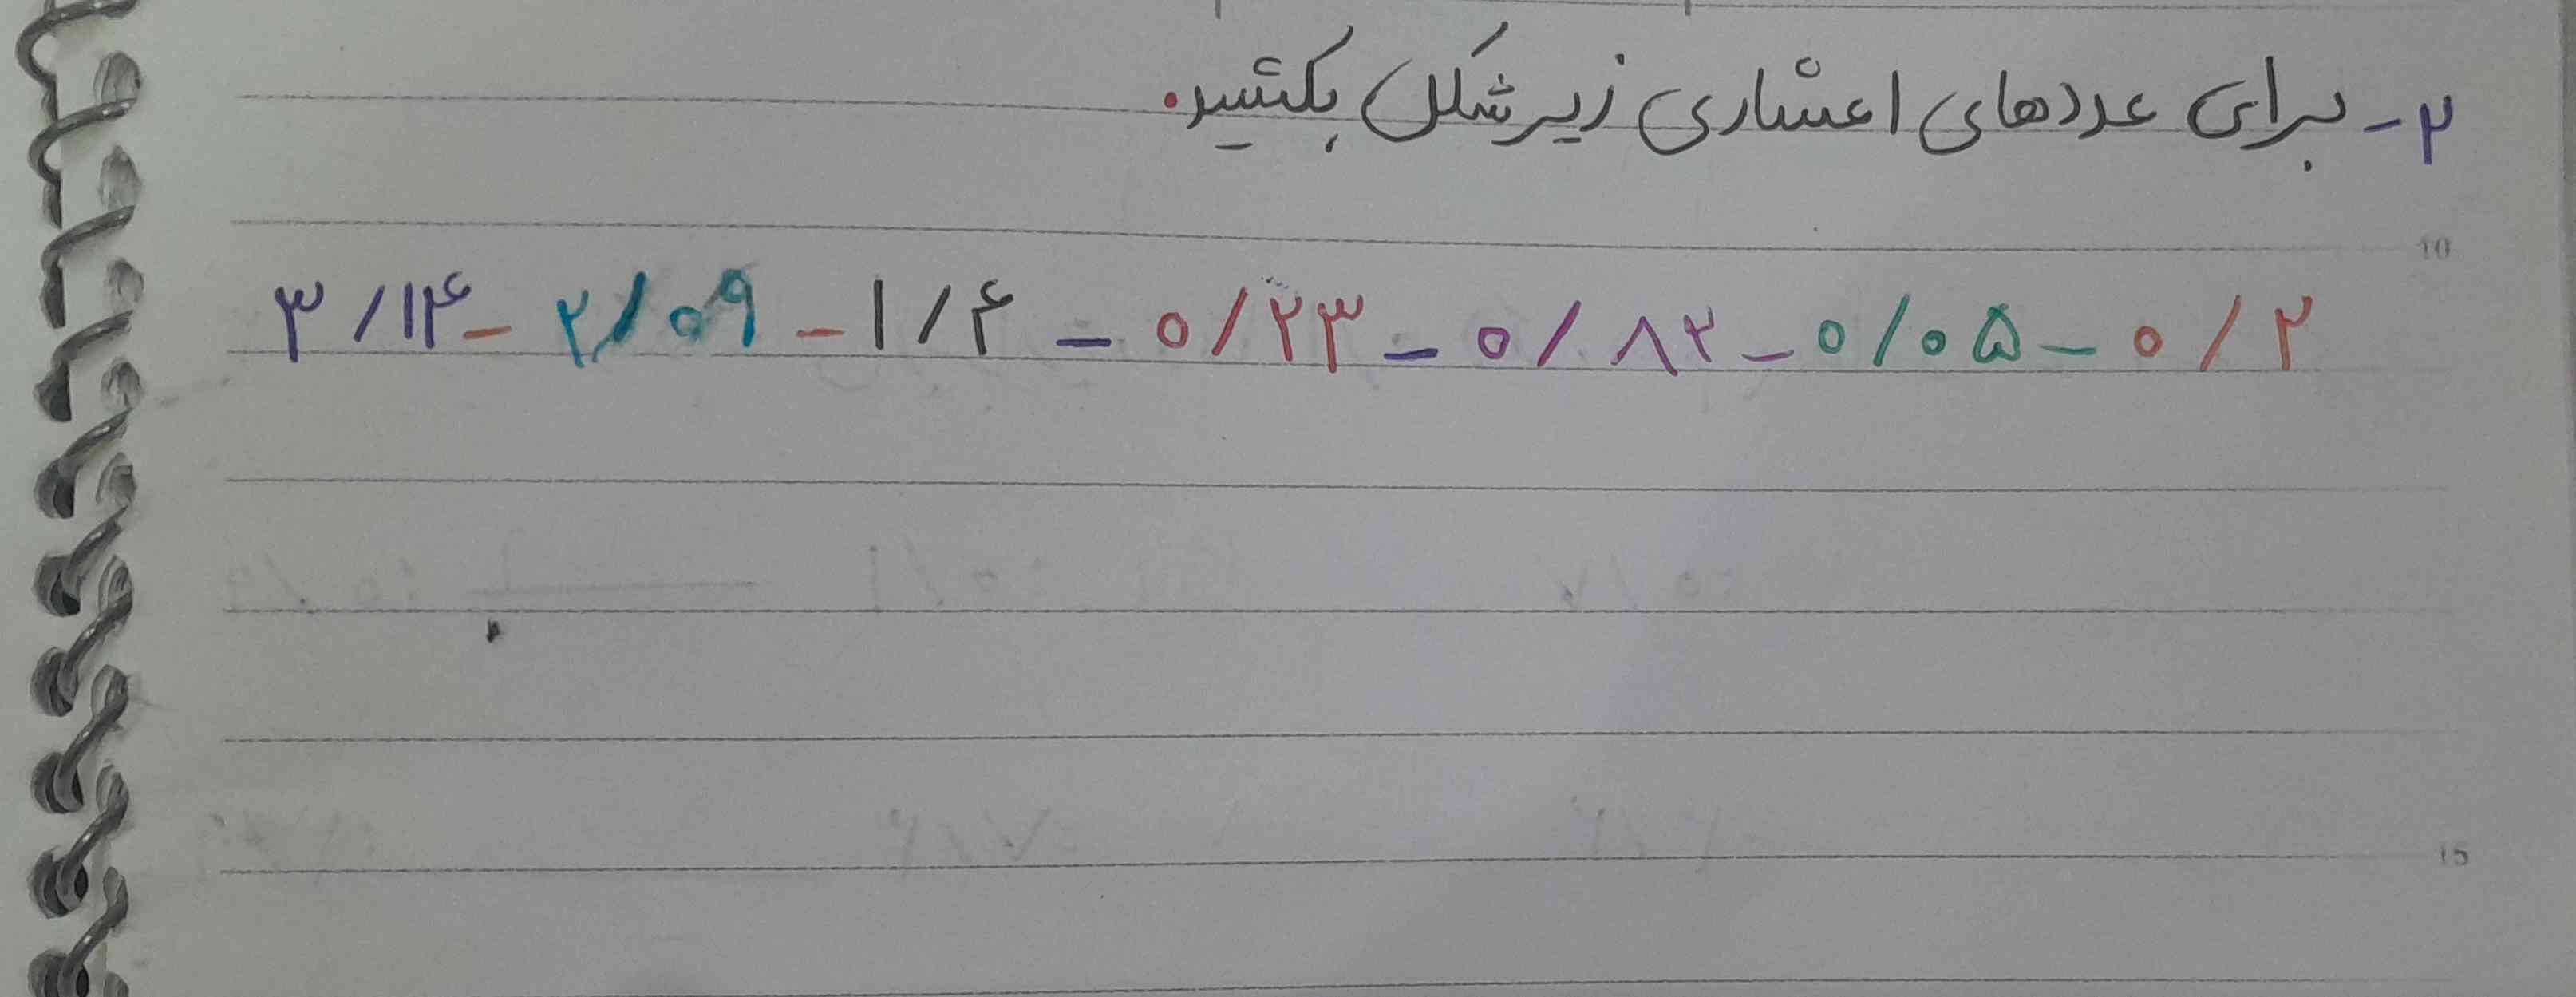 ۲- برای عددهای اعشاری زیر شکل بکشید.
10
۰/۲ - ۰/۰۵ - ۰/۸۲ - ۰/۲۳ - ۱/۴ - ۲/۰۹ - ۳/۱۴
15